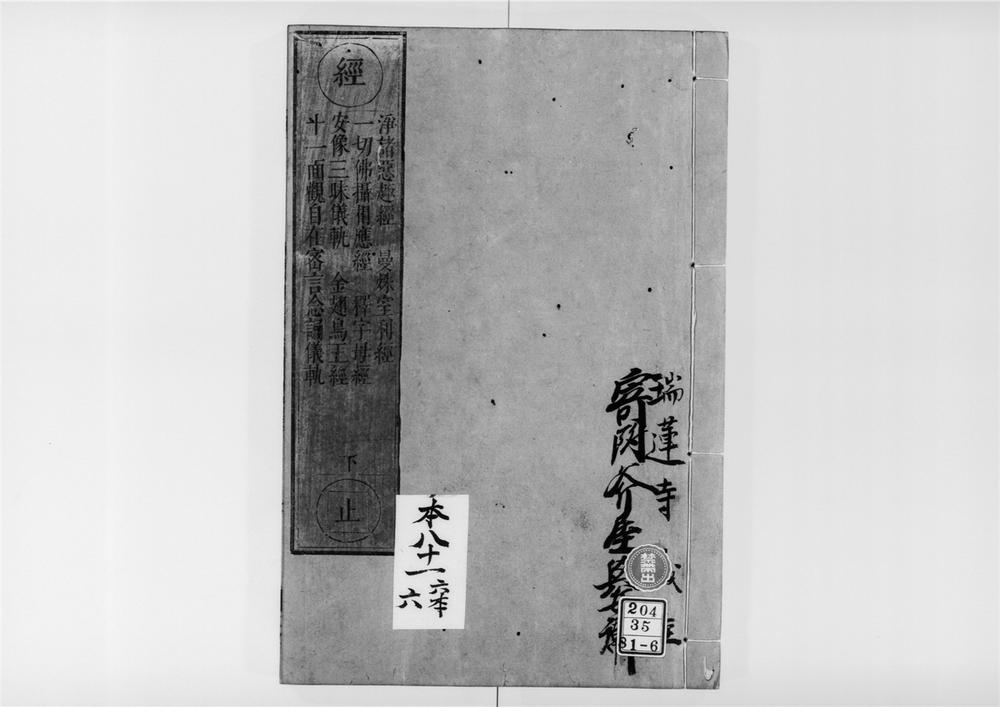 經
淨諸惡趣經 曼殊室利經
一切佛攝相應經 釋字母經
安像三昧儀軌 金翅鳥王經
十一面觀自在密言念誦儀軌
下
止
瑞蓮寺
寄附
本八十一
六本
六
禁帯出
204
35
81-6